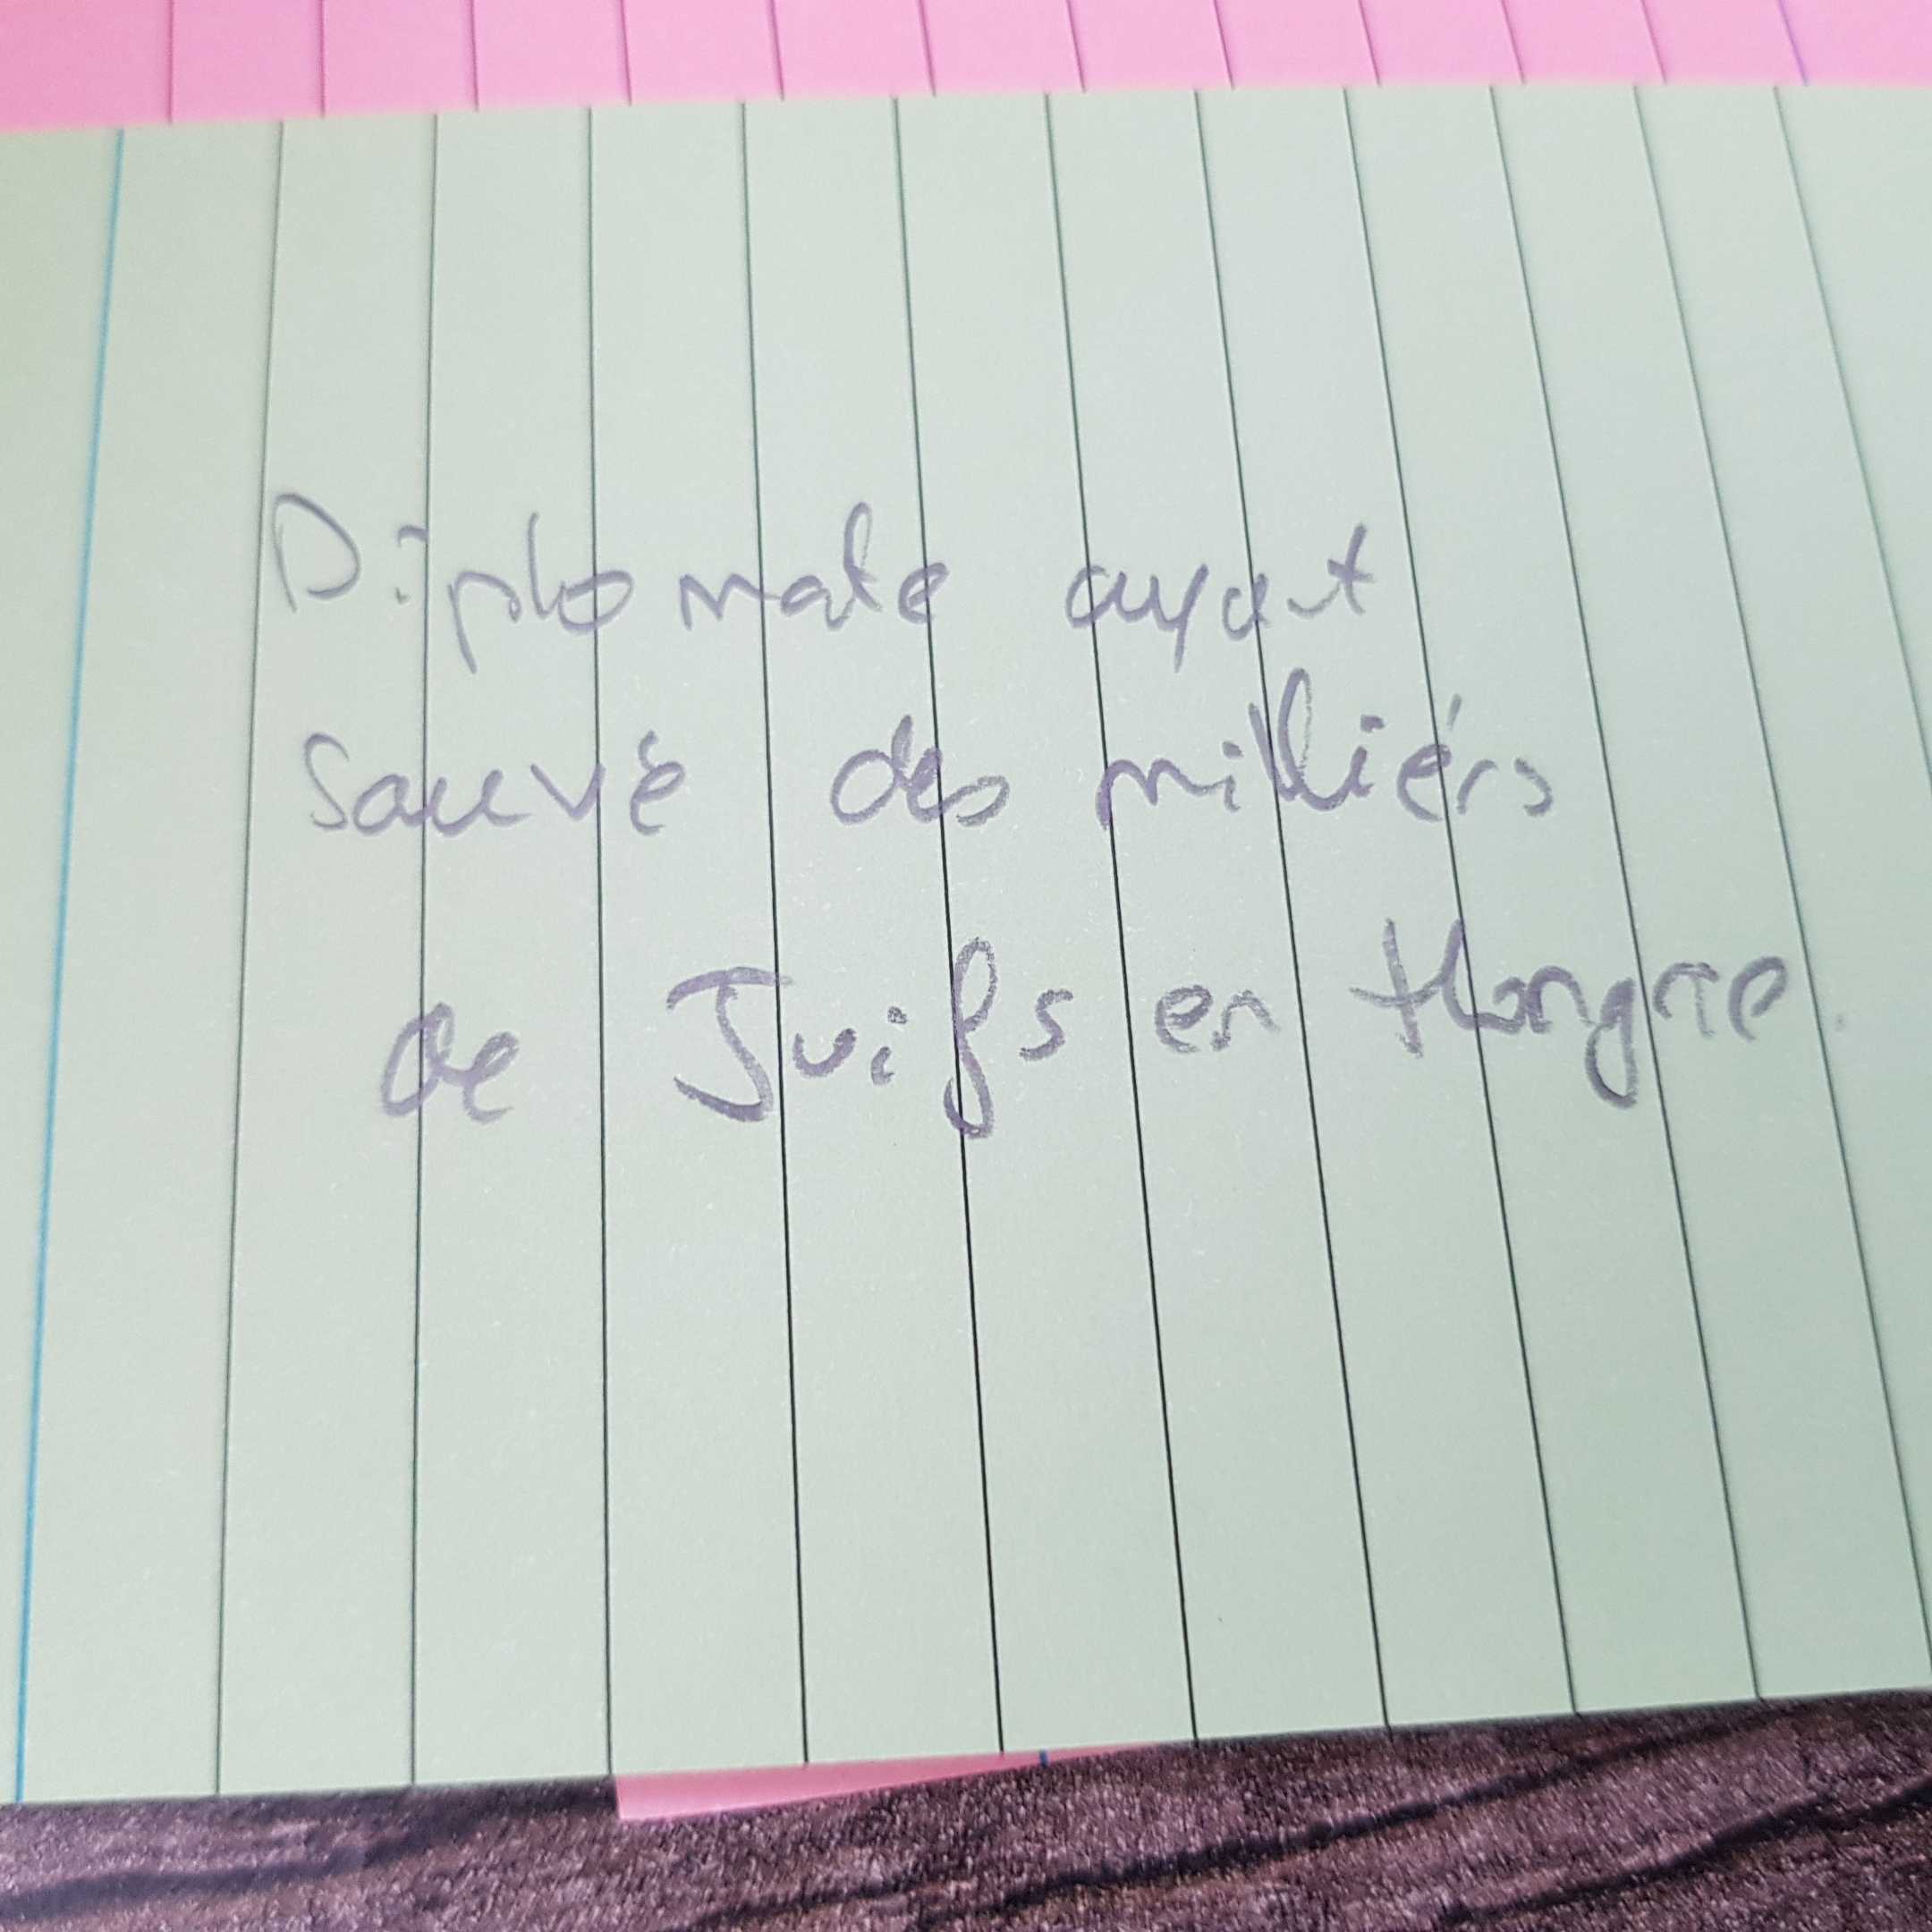 Diplomate ayant
sauvé des milliérs
de Juifs en Hongrie.